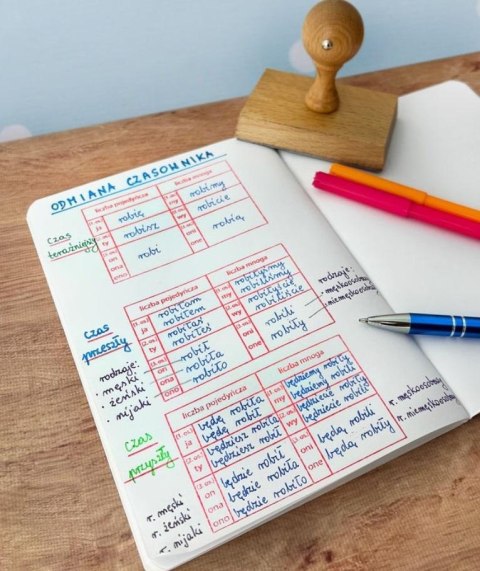 ODMIANA CZASOWNIKA
czas teraźniejszy
liczba pojedyncza
liczba mnoga
1.os. ja robię
1.os. my robimy
2.os. ty robisz
2.os. wy robicie
3.os. on ona ono robi
3.os. oni one robią
czas przeszły
rodzaje:
• męski
• żeński
• nijaki
liczba pojedyncza
liczba mnoga
1.os. ja robiłam
robiłem
1.os. my robiłyśmy
robiliśmy
2.os. ty robiłaś
robiłeś
2.os. wy robiłyście
robiliście
3.os. on robił
ona robiła
ono robiło
3.os. oni robili
one robiły
rodzaje:
• męskoosobowy
• niemęskoosobowy
czas przyszły
r. męski
r. żeński
r. nijaki
liczba pojedyncza
liczba mnoga
1.os. ja będę robiła
będę robił
1.os. my będziemy robiły
będziemy robili
2.os. ty będziesz robiła
będziesz robił
2.os. wy będziecie robiły
będziecie robili
3.os. on będzie robił
ona będzie robiła
ono będzie robiło
3.os. oni będą robili
one będą robiły
r. męskoosobowy
r. niemęskoosobowy